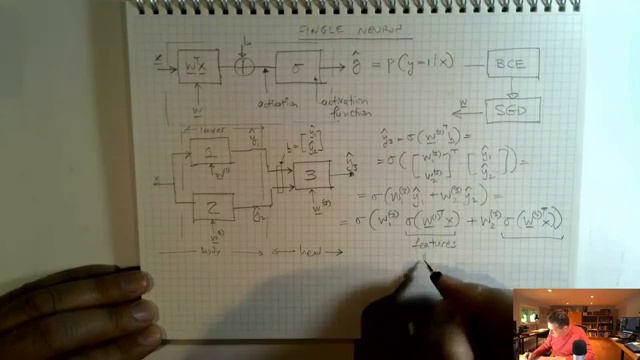 SINGLE NEURON
x
b
wᵀx
+
σ
ŷ = p(y=1/x)
BCE
w
activation
activation function
w
SED
layer
ŷ₁
h = [ŷ₁ ŷ₂]
ŷ₃
1
w⁽¹⁾
x
2
ŷ₂
3
w⁽³⁾
w⁽²⁾
body
head
ŷ₃ = σ(w⁽³⁾ᵀ h) =
= σ([w₁⁽³⁾ w₂⁽³⁾]ᵀ [ŷ₁ ŷ₂]) =
= σ(w₁⁽³⁾ ŷ₁ + w₂⁽³⁾ ŷ₂) =
= σ(w₁⁽³⁾ σ(w⁽¹⁾ᵀ x) + w₂⁽³⁾ σ(w⁽²⁾ᵀ x))
features